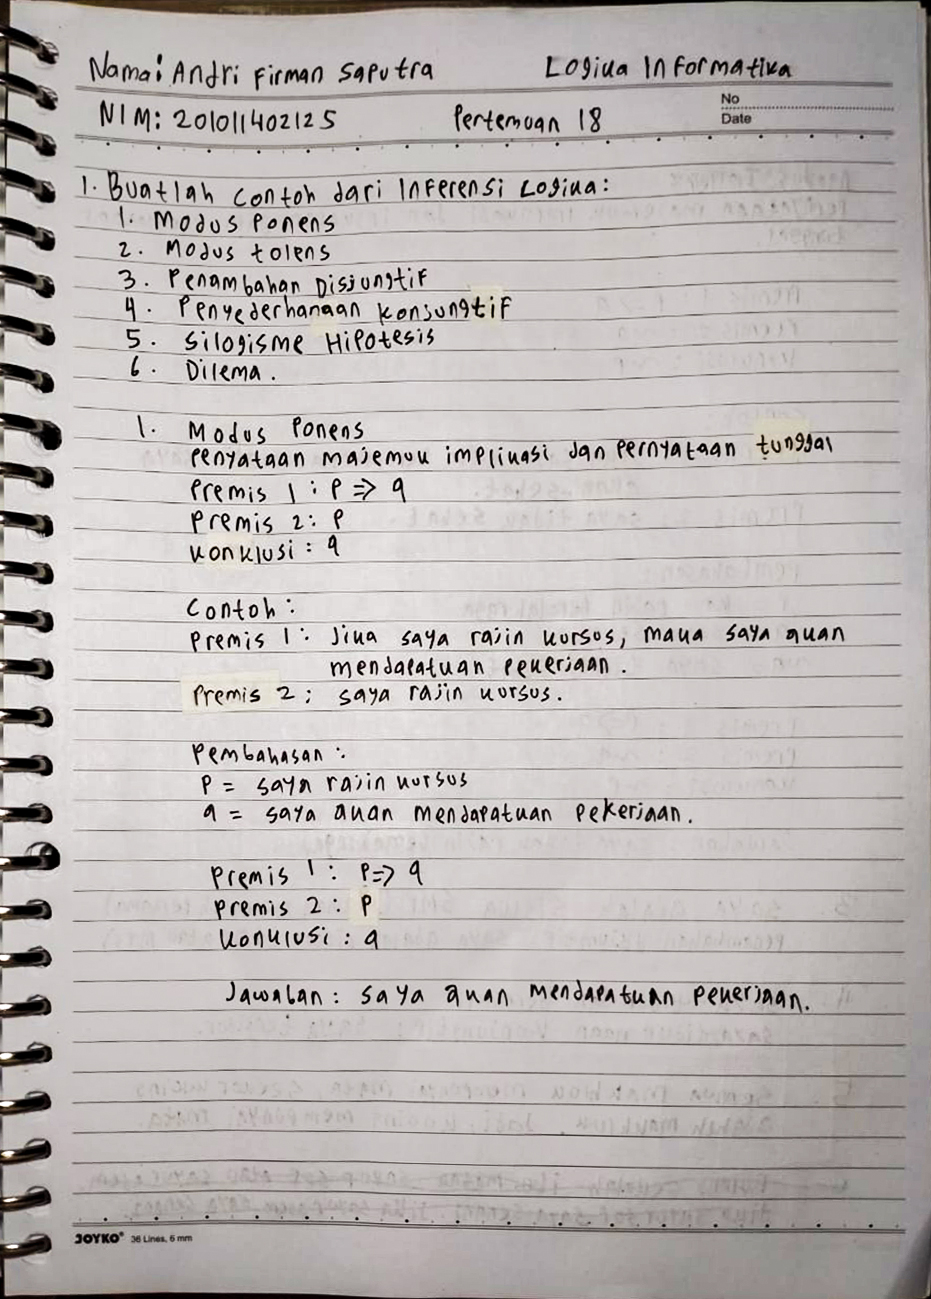 Nama: Andri Firman Saputra Logika Informatika
NIM: 201011402125 Pertemuan 18
No
Date
1. Buatlah contoh dari Inferensi Logika:
1. Modus Ponens
2. Modus tolens
3. Penambahan Disjungtif
4. Penyederhanaan konjungtif
5. Silogisme Hipotesis
6. Dilema.
1. Modus Ponens
Penyataan majemuk implikasi dan Pernyataan tunggal
Premis 1 : P => q
Premis 2 : P
Konklusi : q
Contoh :
Premis 1 : Jika saya rajin kursus, maka saya akan
mendapatkan pekerjaan.
Premis 2 ; saya rajin kursus.
Pembahasan :
P = saya rajin kursus
q = saya akan mendapatkan pekerjaan.
Premis 1 : P => q
Premis 2 : P
Konklusi : q
Jawaban : saya akan mendapatkan pekerjaan.
JOYKO® 36 Lines, 6 mm